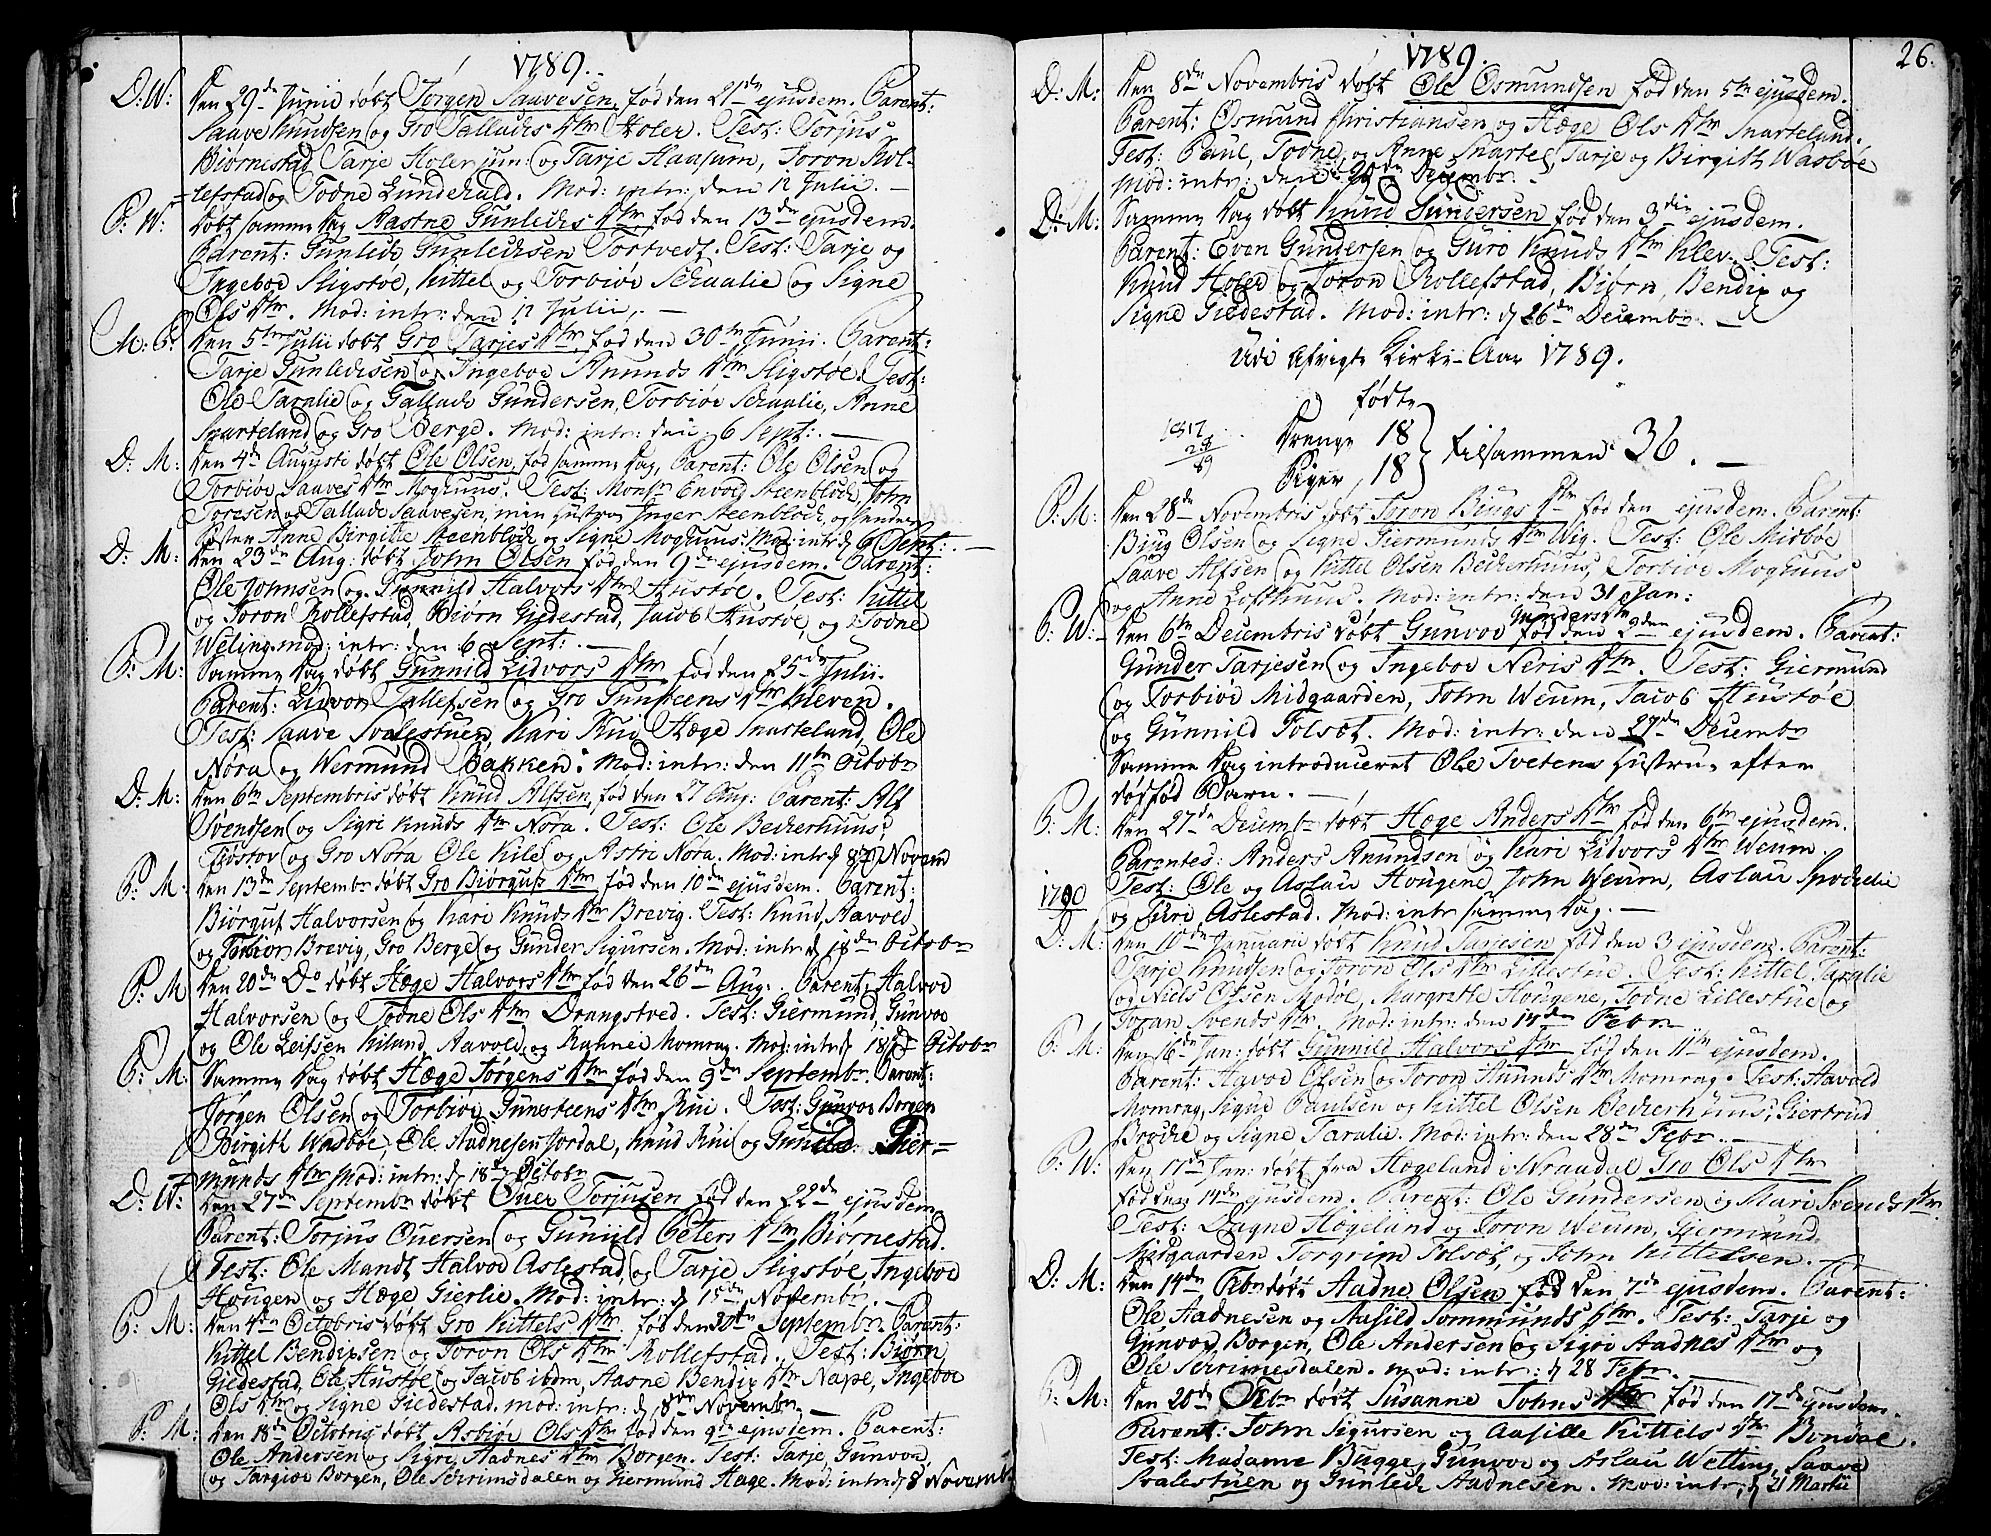 1789.
D: W: Den 29de Junii døbt Jørgen Saavesen, fød den 21de ejusdem. Parent:
Saave Knudsen og Gro Tallachs Dtr Holer. Test: Torjus
Biørnestad, Tarje Holer jun: og Tarje Haasum, Joron Rol-
lefstad og Todne Lundekald. Mod: intr: den 12 Julii. —
P: W: Døbt samme Dag Aasne Gunlechs Dtr fød den 13de ejusdem.
Parent: Gunlech Gunlechsen Tortvedt. Test: Tarje og
Ingeboe Sligstøe, Kittel og Torbiør Schaalie og Signe
Ols Dtr. Mod: intr: den 12 Julii. —
M: P: Den 5te Julii døbt Gro Tarjes Dtr, fød den 30te Junii. Parent:
Tarje Gunlechsen og Ingeboe Anunds Dtr Sligstøe. Test:
Ole Taralie og Tallach Gundersen, Torbiør Schaalie, Anne
Snarteland og Gro Berge. Mod: intr: den 6 Sept: —
D: M: Den 4de Augusti døbt Ole Olsen, fød samme Dag, Parent: Ole Olsen og
Torbiør Saaves Dtr Moghuus. Test: Monsr Envold Steenbloch, John
Toresen og Tallach Saavesen, min Hustru Inger Steenbloch, og hendes
Søster Anne Birgitte Steenbloch og Signe Moghuus. Mod: intr: d 6 Sept: —
D: M: Den 23de Aug: døbt John Olsen fød den 9de ejusdem. Parent:
Ole Johnsen og Gunnild Halvors Dtr Hustøe. Test: Kittel
og Joron Rollefstad, Biørn Giedestad, Jacob Hustøe, og Todne
Weting. mod: intr: den 6 Sept: —
P: M: Samme Dag døbt Gunnild Lidvors Dtr, fød den 25de Julii.
Parent: Lidvor Tallefsen og Gro Gunsteens Dtr Kleven.
Test: Saave Svalestuen, Kari Rui, Hæge Snarteland, Ole
Nøra og Wermund Bakken. Mod: intr: den 11te Octobr
D: M: Den 6te Septembris døbt Knud Alfsen, fød den 27 Aug: Parent: Alf
Svendsen og Sigri Knuds Dtr Nøra. Test: Ole Beckerhuus,
Tiøstov og Gro Nøra, Ole Kile og Astri Nøra. Mod: intr: d 8de Novem
P: M: Den 13de Septembr døbt Gro Biørgufs Dtr fød den 10de ejusdem. Parent:
Biørguf Halvorsen og Kari Knuds Dtr Brevig. Test: Knud, Aavold
og Brevig, Gro Berge og Gunder Sigursen. Mod: intr: d 18de Octobr
P: M: Den 20de Do døbt Hæge Halvors Dtr fød den 26de Aug: Parent: Halvoe
Halvorsen og Todne Ols Dtr Drangstved. Test: Giermund, Gunvoe
og Ole Leifsen Kiland, Aavold og Rahnei Momrag. Mod: intr: d 18de Octobr
P: M: Samme Dag døbt Hæge Jørgens Dtr fød den 9de Septembr. Parent:
Jørgen Olsen og Torbiør Gunsteens Dtr Rui. Test: Gunvoe Borgen
Birgith Wasbøe, Ole Aadnesen Jordal, Knud Rui og Gunild Gier-
munds Dtr Mod: intr: d 18de Octobr
D: W: Den 27de Septembr døbt Ouer Torjusen fød den 22de ejusdem
Parent: Torjus Ouersen og Gunild Peters Dtr Biørnestad.
Test: Ole Mandt, Halvoe Aslestad, og Tarje Sligstøe, Ingeboe
Hougen og Hæge Gierlie. Mod: intr: d 15de Novembr. —
P: M: Den 4de Octobris døbt Gro Kittels Dtr, fød den 20de Septembr. Parent:
Kittel Bendixsen og Joron Ols Dtr Rollefstad. Test: Biørn
Giedestad, Ole Hustøe og Jacob ibdm, Aasne Bendix Dtr Nape, Ingeboe
Ols Dtr og Signe Giedestad. mod: intr: d 8de Novembr —
P: M: Den 18de Octobris døbt Asbiør Ols Dtr fød den 9de ejusdem. Parent:
Ole Andersen og Sigri Aadnes Dtr Borgen. Test: Tarje, Gunvoe,
og Targiør Borgen, Ole Schrimsdalen og Giermund Hage. Mod: intr: d 8 Novembr
1789. 26.
D: M: Den 8de Novembris døbt Ole Osmundsen fød den 5te ejusdem.
Parent: Osmund Christiansen og Hæge Ols Dtr Snarteland.
Test: Paul, Todne og Anne Snartel, Tarje og Birgith Wasbøe
Mod: intr: den 20de Decembr. —
D: M: Samme Dag døbt Knud Gundersen fød den 3die ejusdem.
Parent: Even Gundersen og Guro Knuds Dtr Klev. Test:
Knud Holer og Joron Rollefstad, Biørn, Bendix og
Signe Giedestad. Mod: intr: d 26de Decembr. —
Udi Afvigte Kirke-Aar 1789.
fødte
1817
28
89
Drenge 18
Piger, 18
tilsammen 36. —
P: M: Den 28de Novembris døbt Joron Biugs Dtr fød den ejusdem. Parent:
Biug Olsen og Signe Giermunds Dtr Wig. Test: Ole Midbøe
Saave Alfsen og Kittel Olsen Beckerhuus, Torbiør Moghuus
og Anne Lofthuus. Mod: intr: den 31 Jan:
P: W: Den 6te Decembris døbt Gunvoe Gunders Dtr fød den 2den ejusdem. Parent:
Gunder Tarjesen og Ingeboe Neris Dtr. Test: Giermund
og Torbiør Midgaarden, John Weum, Jacob Hustøe
og Gunnild Folsøt. Mod: intr: den 27de Decembr
Samme Dag introduceret Ole Tvetens Hustrue efter
dødfød Barn. —
P: M: Den 27de Decembr døbt Hæge Anders Dtr fød den 6te ejusdem.
Parentes: Anders Anundsen og Kari Lidvors Dtr Weum.
Test: Ole og Aslau Hougene, John Weum, Aslau
og Juri Aslestad. Mod: intr samme Dag. —
1790
D: M: Den 10de Januarii døbt Knud Tarjesen fød den 3 ejusdem. Parent:
Tarje Knudsen og Joron Ols Dtr Lillestue. Test: Kittel Taralie
og Niels Olsen Modøl, Margrethe Hougene, Todne Lillestue og
Joran Svends Dtr. Mod: intr: den 14de Febr
P: M: Den 16de Jan: døbt Gunnild Halvors Dtr fød den 11te ejusdem.
Parent: Havoe Olsen og Joron Anunds Dtr Momrag. Test: Aavold
Momrag, Signe Paulsen og Kittel Olsen Beckerhuus, Giertrud
Brødie og Signe Taralie. Mod: intr: den 28de Febr. —
P: W: Den 17de Jan: døbt fra Hægeland i Wraadal Gro Ols Dtr
fød den 14de ejusdem. Parent: Ole Gundersen og Mari Svends Dtr.
Test: Dagne Hægeland og Joron Weum, Giermund
Midgaarden, Torgrim Folsøt, og John Kittelsen.
D: M: Den 14de Febr døbt Aadne Olsen fød den 7de ejusdem. Parent:
Ole Aadnesen og Aasild Sommunds Dtr. Test: Tarje og
Gunvoe Borgen, Ole Andersen og Sigri Aadnes Dtr og
Ole Schrimesdalen. mod: intr: d 28 Febr. —
P: M: Den 20de Febr døbt Susanne Johns Dtr fød den 17de ejusdem.
Parent: John Sigursen og Aasille Kittels Dtr Bondal.
Test: Madame Bugge, Gunvoe og Aslau Wetting, Saave
Svalestuen og Gunlech Aadnesen. Mod: intr: d 21 Martii